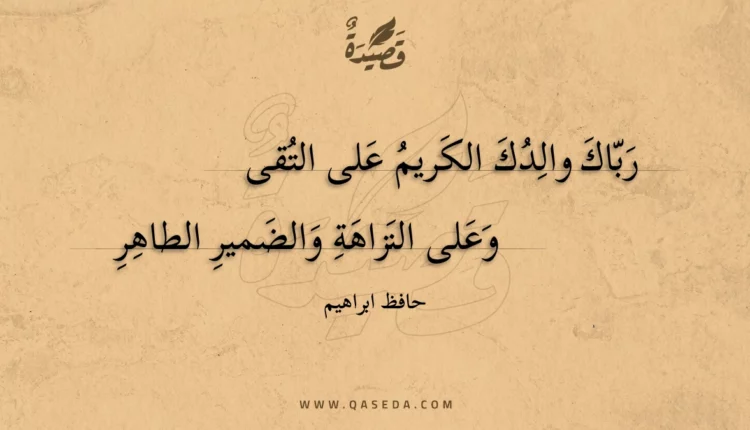 قَصِيْدَةٌ
رَبّاكَ والِدُكَ الكَريمُ عَلى التُقى
وَعَلى النَزاهَةِ وَالضَميرِ الطاهِرِ
حافظ ابراهيم
WWW.QASEDA.COM